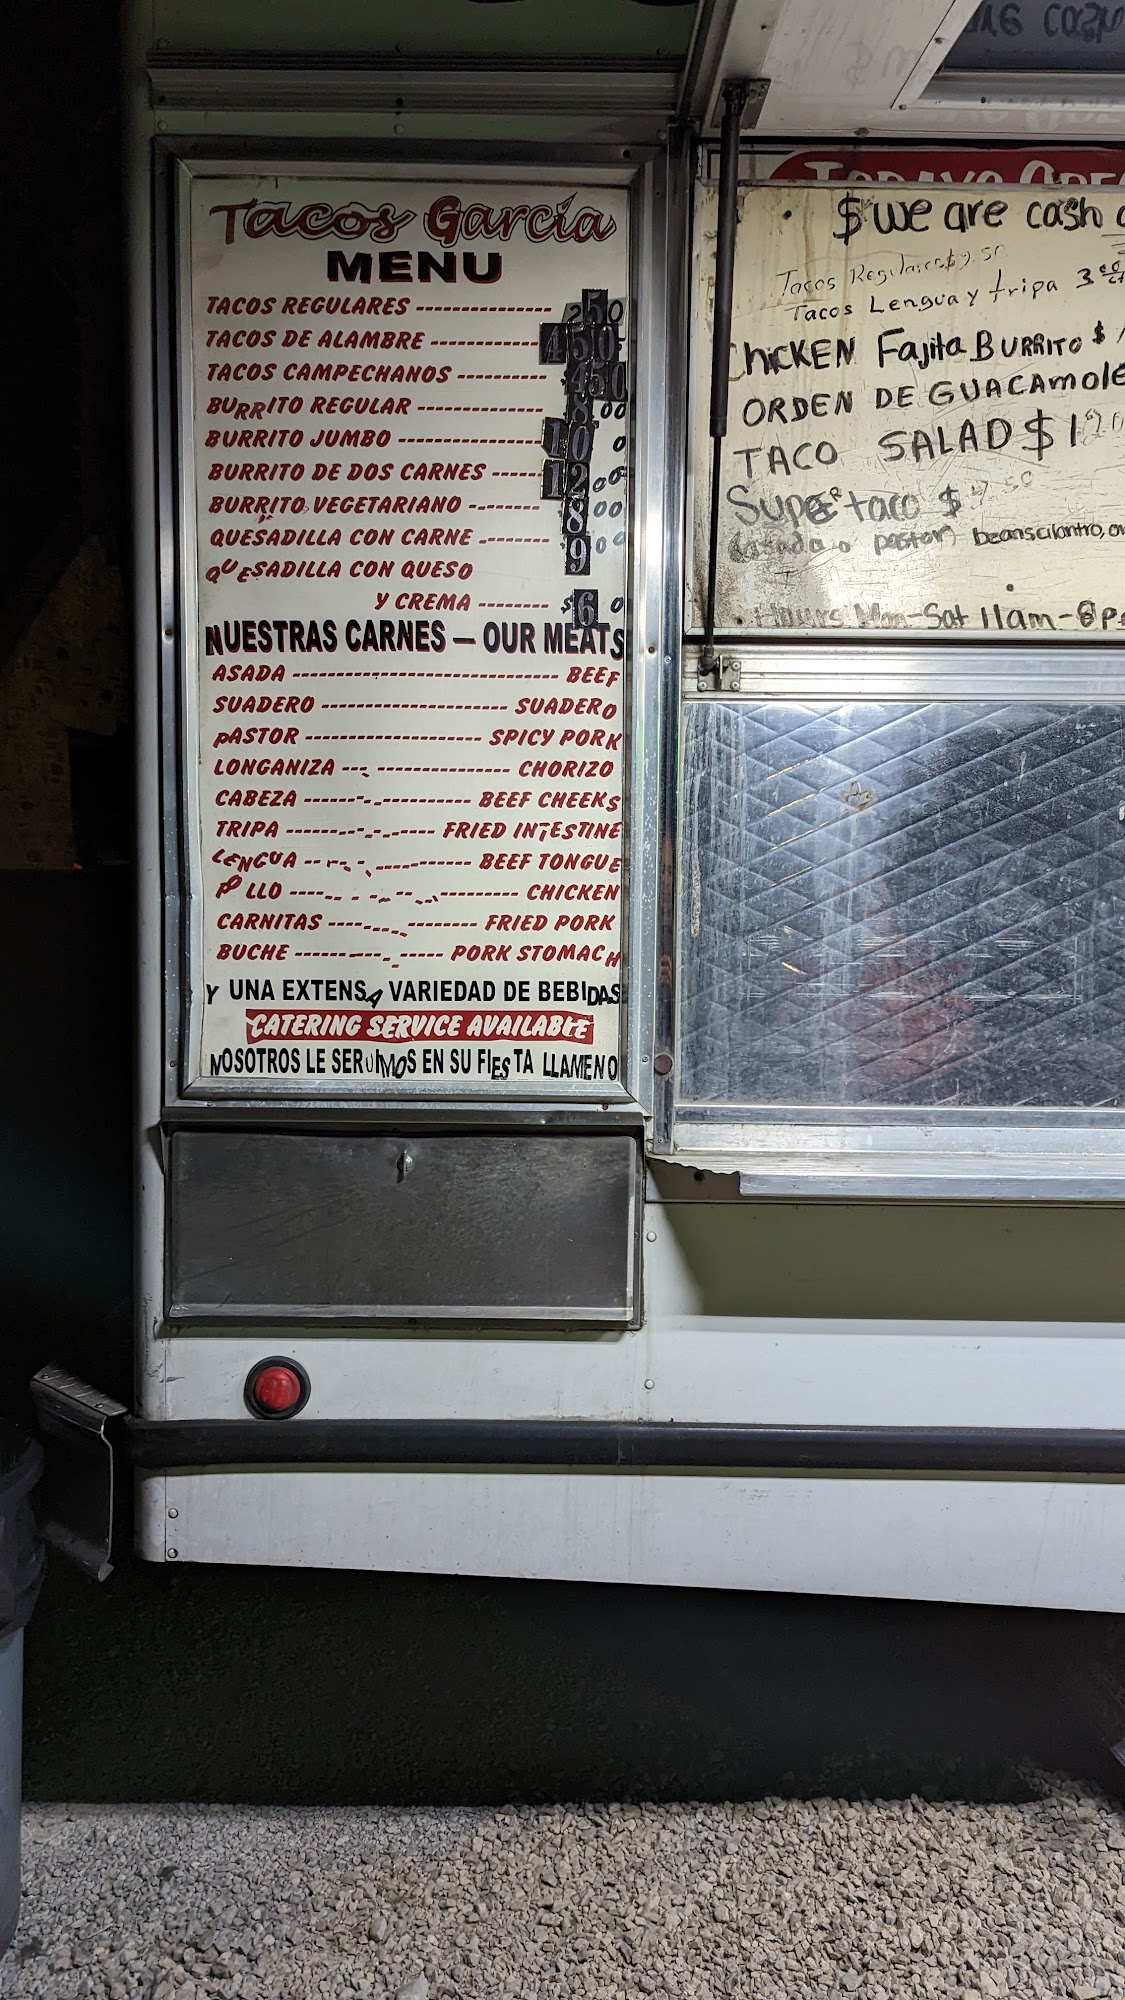 Tacos Garcia
MENU
TACOS REGULARES ---------------- 250
TACOS DE ALAMBRE ------------- 450
TACOS CAMPECHANOS --------- 450
BURRITO REGULAR --------------- 8 00
BURRITO JUMBO ----------------- 10 0
BURRITO DE DOS CARNES ----- 12 00
BURRITO VEGETARIANO -------- $8 00
QUESADILLA CON CARNE -------- 9 00
QUESADILLA CON QUESO
Y CREMA -------- $6 0
NUESTRAS CARNES — OUR MEATS
ASADA ------------------------------ BEEF
SUADERO --------------------- SUADERO
PASTOR -------------------- SPICY PORK
LONGANIZA ------------------- CHORIZO
CABEZA ------------------- BEEF CHEEKS
TRIPA ---------------- FRIED INTESTINE
LENGUA ------------------ BEEF TONGUE
POLLO ------------------------- CHICKEN
CARNITAS ----------------- FRIED PORK
BUCHE ----------------- PORK STOMACH
Y UNA EXTENSA VARIEDAD DE BEBIDAS
CATERING SERVICE AVAILABLE
NOSOTROS LE SERVIMOS EN SU FIESTA LLAMENO
$ we are cash
Tacos Regulares $2.50
Tacos Lengua y tripa 3
ChicKEN Fajita BURRITO $
ORDEN DE GUACAMOLE
TACO SALAD $1
Super taco $
asada o pastor) beans cilantro,
Hours Mon-Sat 11am-8p